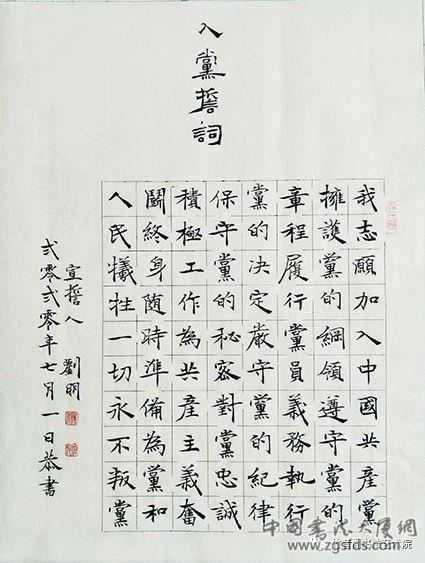 入黨誓詞
我志願加入中國共產黨
擁護黨的綱領遵守黨的
章程履行黨員義務執行
黨的決定嚴守黨的紀律
保守黨的秘密對黨忠誠
積極工作為共產主義奮
鬭終身隨時準備為黨和
人民犧牲一切永不叛黨
宣誓人 劉明
弍零弍零年七月一日恭書
中国书法大厦網
www.zgsfds.com